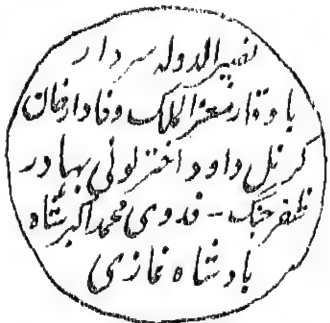 نصیر الدوله سردار
باوقار معز الملک وفادار خان
کرنل داود اختر لونی بهادر
ظفر جنگ - فدوی محمد اکبر شاه
بادشاه غازی